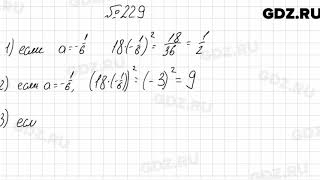 GDZ.RU
№229
1) если a=-1/6 18(-1/6)² = 18/36 = 1/2
2) если a=-1/6, (18·(-1/6))² = (-3)² = 9
3) есл
GDZ.RU